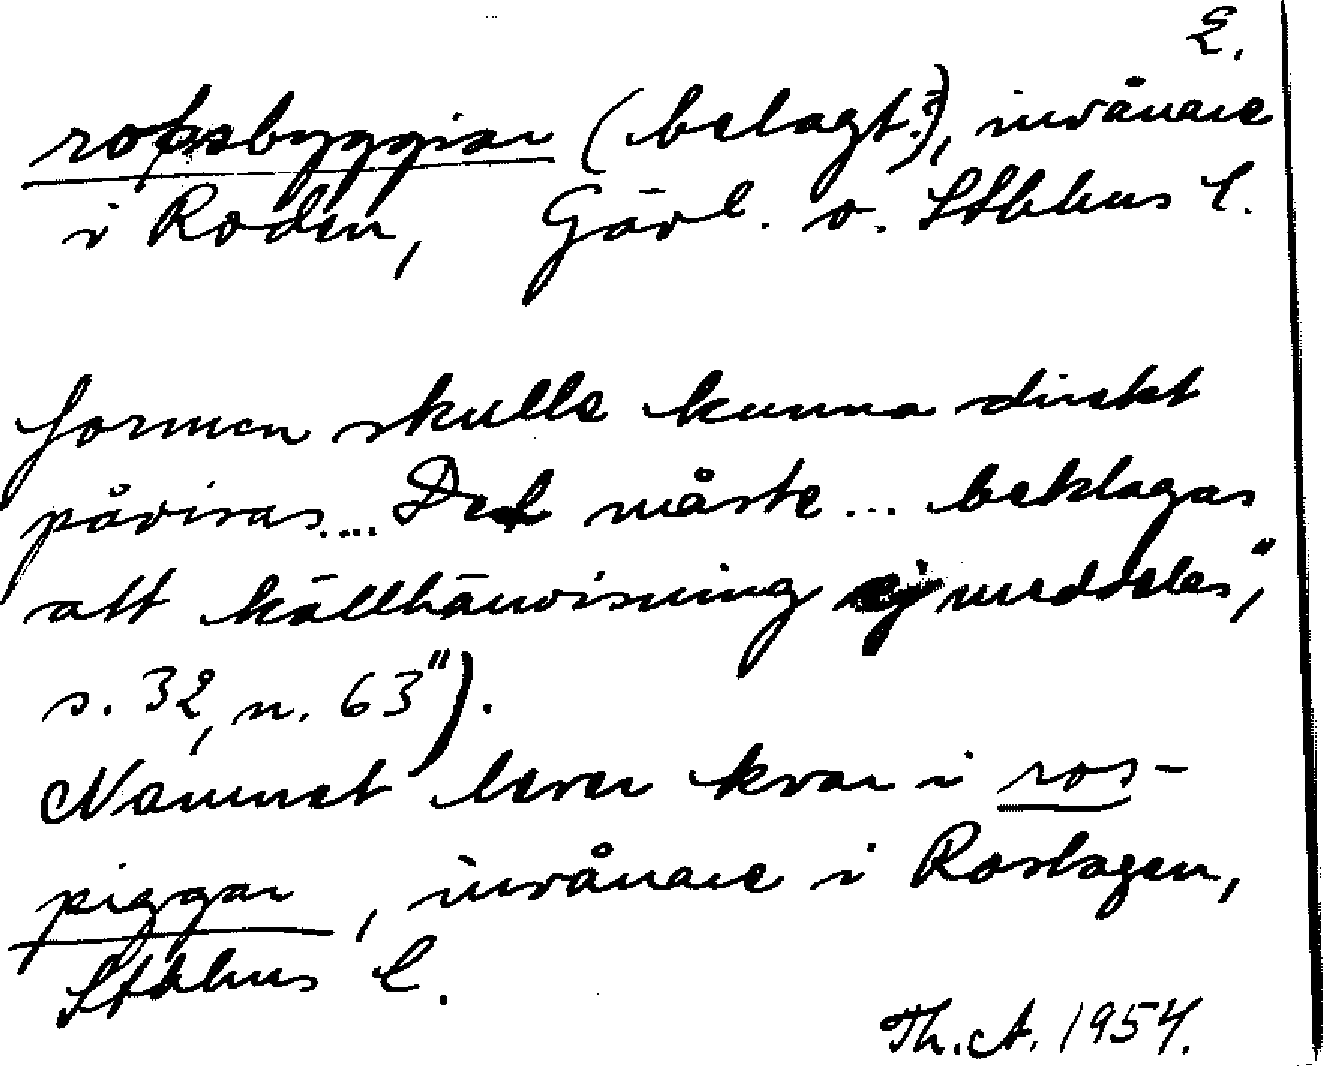 2.
roþsbyggiar (belagt?), invånare
i Roden, Gävl. o. Sthlms l.
formen skulle kunna direkt
påvisas... Det måste ... beklagas
att källhänvisning ej meddelas",
s. 32, n. 63").
Namnet lever kvar i ros-
piggar, invånare i Roslagen,
Sthlms l.
Th. A. 1954.